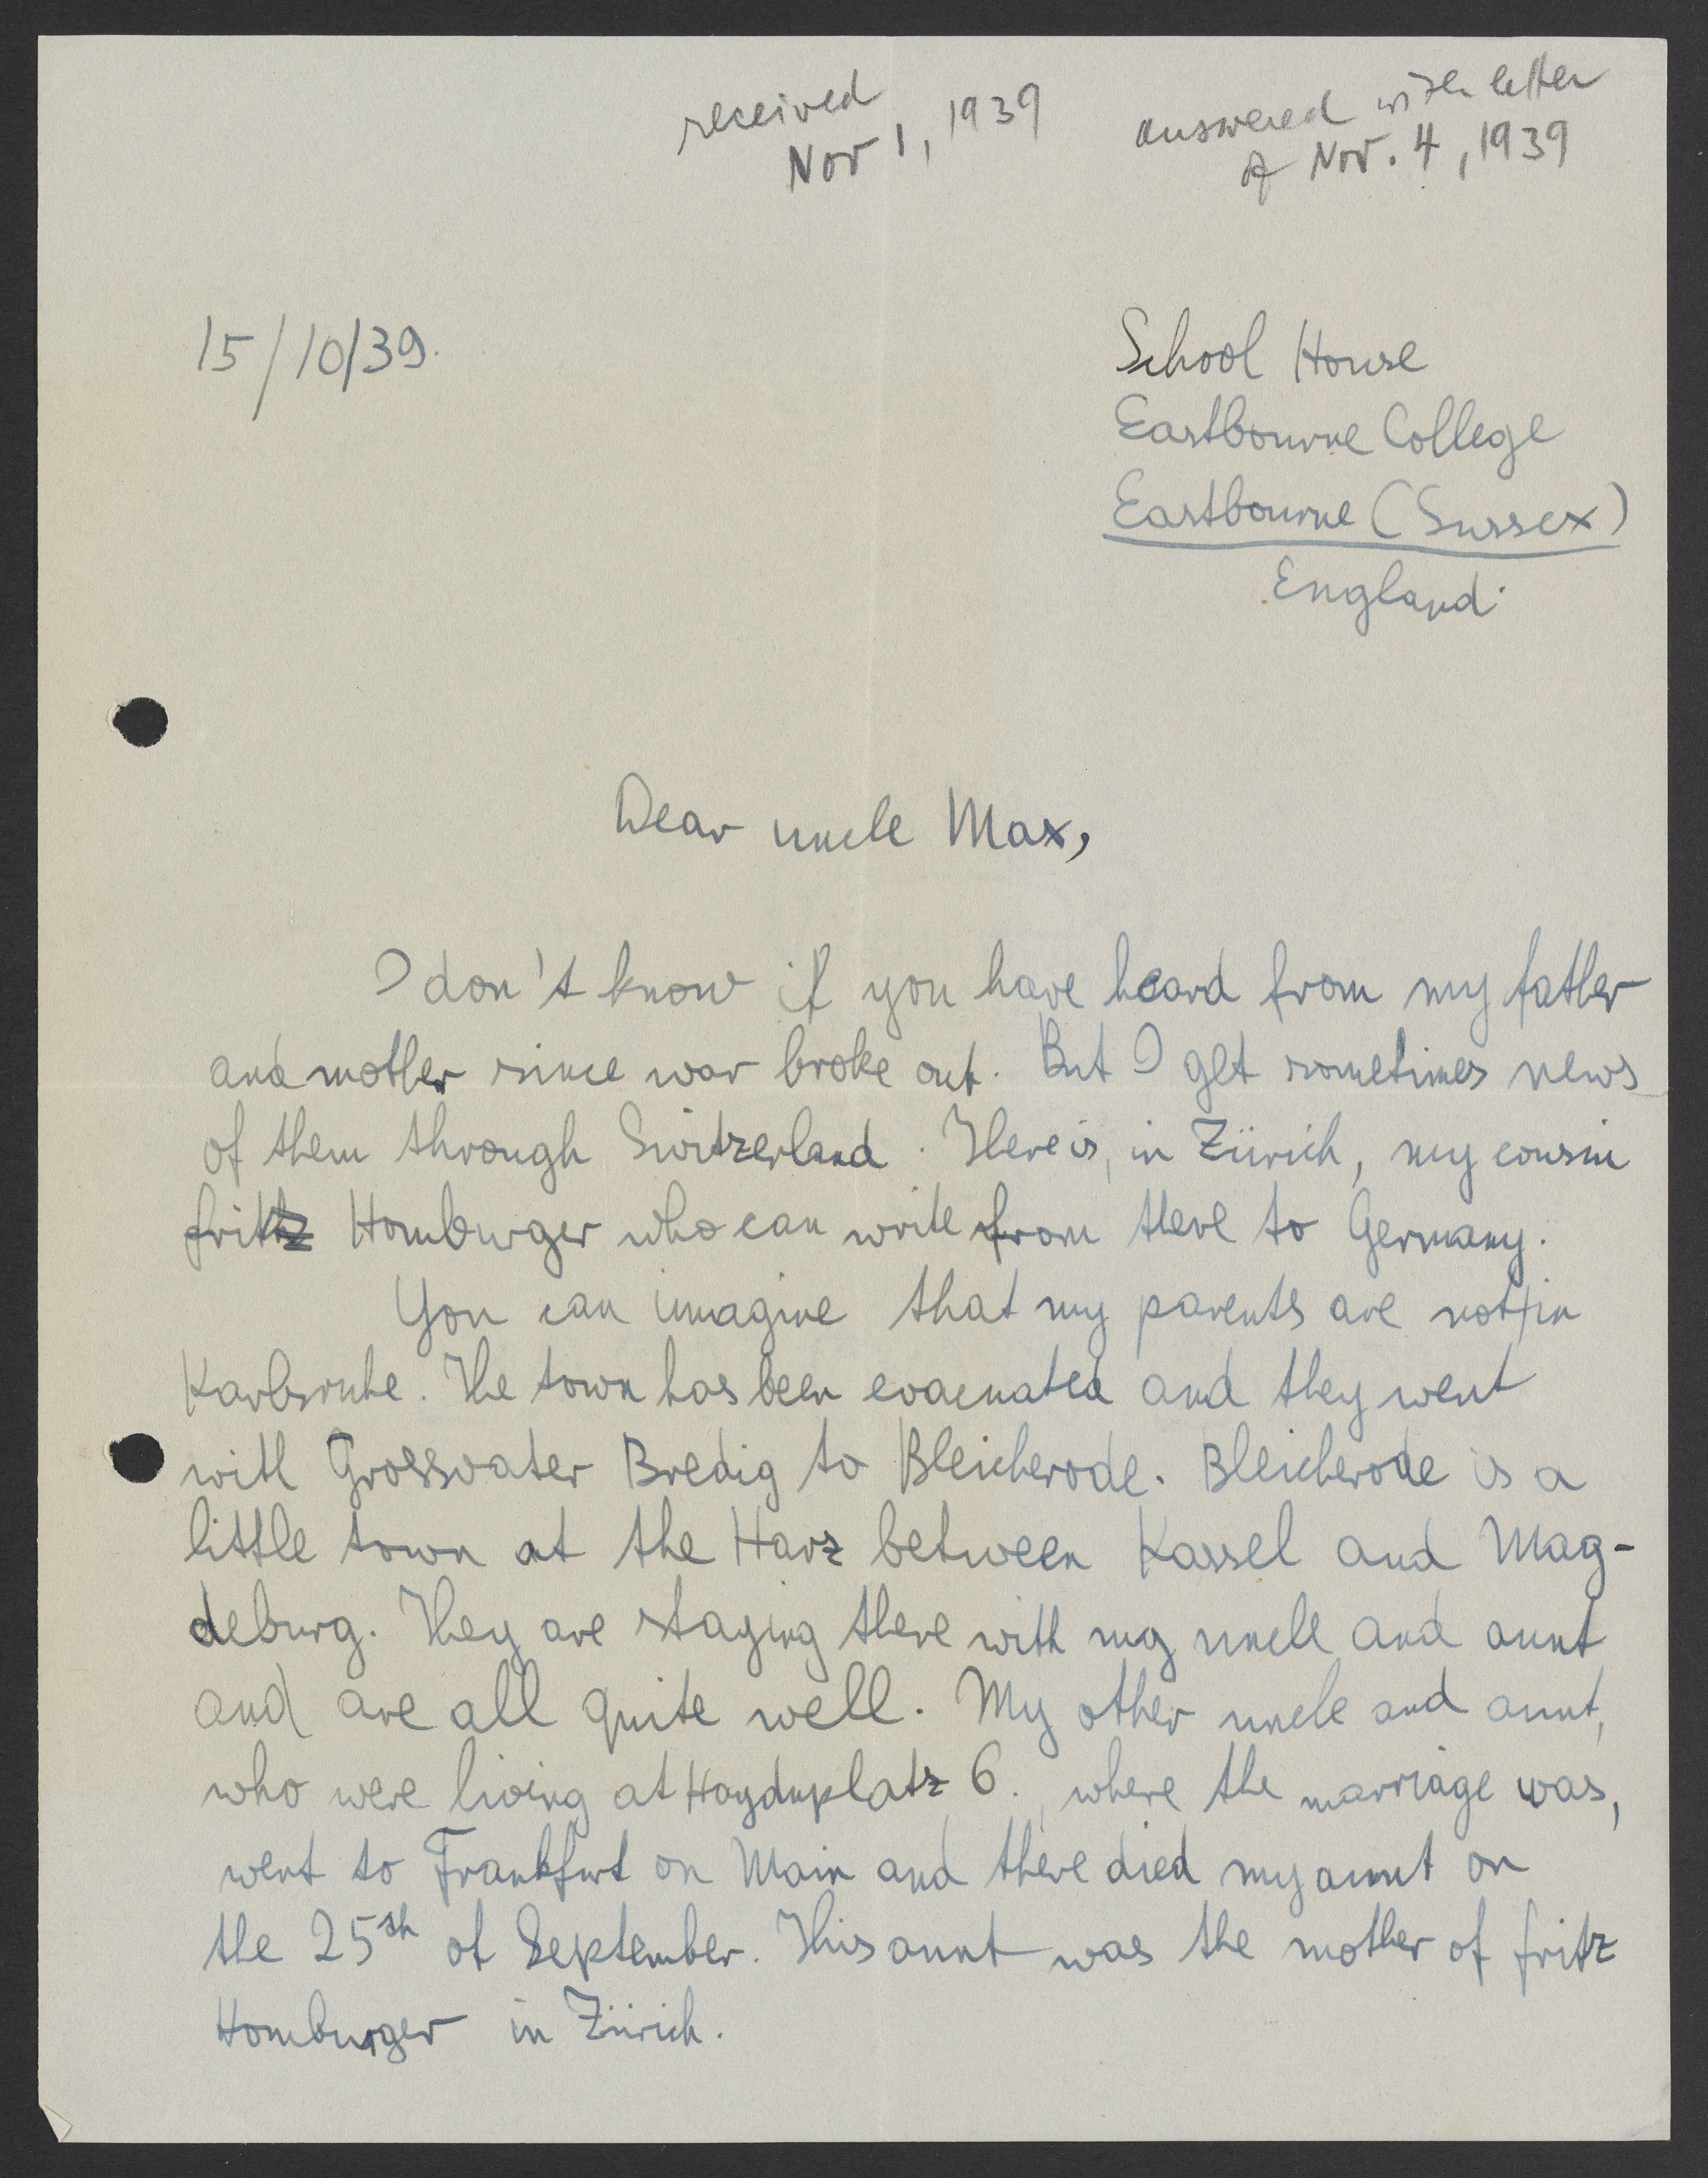 received
Nov 1, 1939
answered with letter
of Nov. 4, 1939
15/10/39.
School House
Eastbourne College
Eastbourne (Sussex)
England.
Dear uncle Max,
I don't know if you have heard from my father
and mother since war broke out. But I get sometimes news
of them through Switzerland. There is, in Zürich, my cousin
fritz Homburger who can write from there to Germany.
You can imagine that my parents are not in
Karlsruhe. The town has been evacuated and they went
with Grossvater Bredig to Bleicherode. Bleicherode is a
little town at the Harz between Kassel and Mag-
deburg. They are staying there with my uncle and aunt
and are all quite well. My other uncle and aunt,
who were living at Haydnplatz 6., where the marriage was,
went to Frankfurt on Main and there died my aunt on
the 25th of September. This aunt was the mother of fritz
Homburger in Zürich.